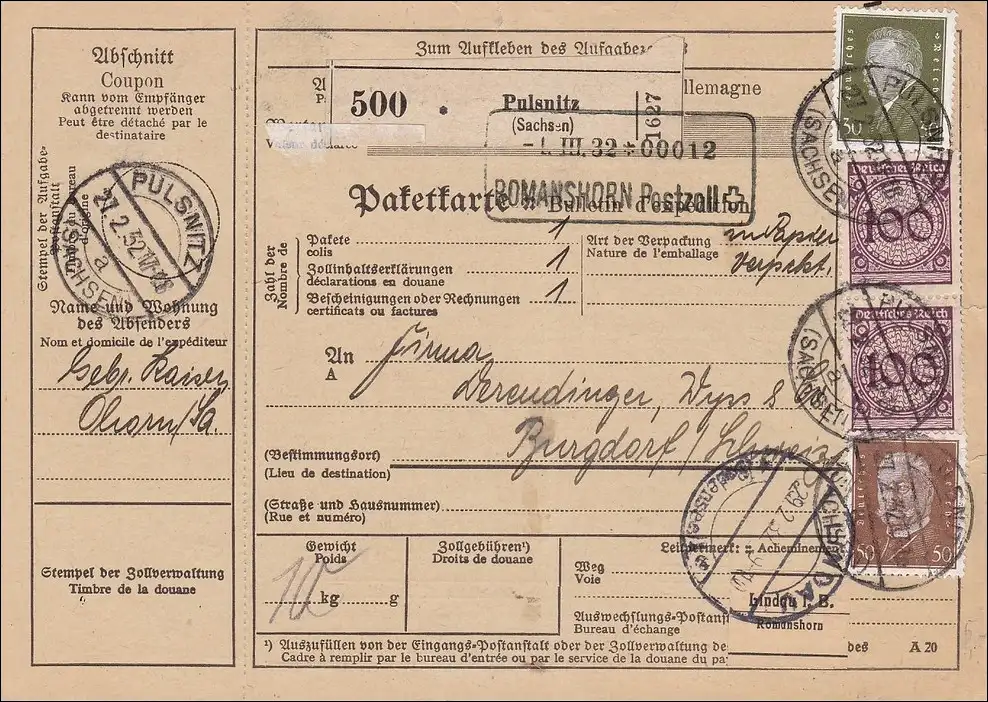 Abschnitt
Coupon
Kann vom Empfänger
abgetrennt werden
Peut être détaché par le
destinataire
Stempel der Aufgabe-
Postanstalt
Timbre du bureau
d'origine
PULSNITZ
27.2.32.17-18
a
(SACHSEN)
Name und Wohnung
des Absenders
Nom et domicile de l'expéditeur
Gebr. Kaiser,
Ohorn/Sa.
Stempel der Zollverwaltung
Timbre de la douane
Zum Aufkleben des Aufgabeze
llemagne
500
Pulsnitz
(Sachsen)
1627
Valeur déclarée
-1. III. 32 * 00012
ROMANSHORN Postzoll
Paketkarte
Bulletin d'expédition
Zahl der
Nombre de
Pakete
colis
1
Zollinhaltserklärungen
déclarations en douane
1
Bescheinigungen oder Rechnungen
certificats ou factures
1
Art der Verpackung
Nature de l'emballage
in Papier
verpackt.
An
A
Firma
Derendinger, Wyss & Co
Burgdorf / Schweiz
(Bestimmungsort)
(Lieu de destination)
(Straße und Hausnummer)
(Rue et numéro)
Gewicht
Poids
10
kg
g
Zollgebühren¹)
Droits de douane
Leitvermerk: Acheminement
Weg
Voie
Auswechslungs-Postanst
Bureau d'échange
Lindau i. B.
Romanshorn
¹) Auszufüllen von der Eingangs-Postanstalt oder der Zollverwaltung de
des
A 20
Cadre à remplir par le bureau d'entrée ou par le service de la douane du pa
LINDAU
29.2.32
Deutsches Reich
30
PULSNITZ
(SACHSEN)
Deutsches Reich
100
Deutsches Reich
100
PULSNITZ
(SACHSEN)
Deutsches Reich
50
50